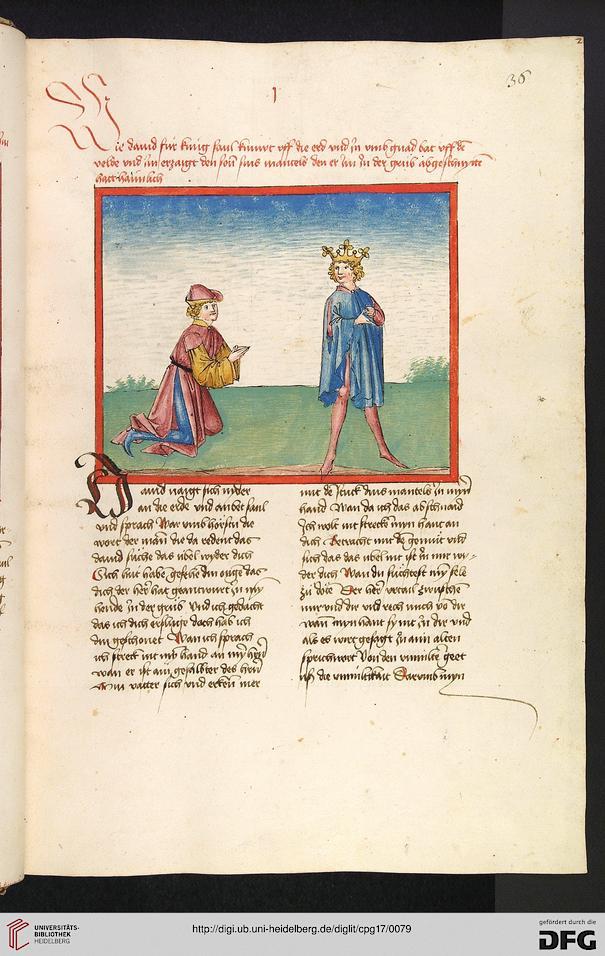 36
I
Wie dauid für king saul kumpt vff die erd vnd in vmb gnad bat vff de
velde vnd im erzaigt den som sins mantels den er im in der grub abgeschnyten
hatt haimlich
Dauid naigt sich nyder
an die erde vnd anbet saul
vnd sprach War vmb hörstu die
wort der man die da redent das
dauid suche das übel wyder dich
Sich hut habe gesehe din ouge das
dich der her hat geantwurt zu my
hende in der grub Vnd ich gedacht
das ich dich erschluge doch hab ich
din geschonet Wan ich sprach
ich streck nit my hand an my hern
wan er ist ain gesalbter des hern
Min vatter sich vnd erken mer
mit de stuck dins mantels in myn
hand Wan da ich das abschnaid
Ich wolt nit strecke myn hant an
dich Betracht mit de gemüt vnd
sich das das übel nit ist in mir wi-
der dich Wan du suchest my sele
zu döte Der her vrtail zwüsche
mir vnd dir vnd rech mich vo dir
wan myn hant sy nit zu dir vnd
als es wirt gesagt in aim alten
sprichwort Von den vnmilte geet
vß die vnmiltikait Darumb myn
UNIVERSITÄTS-
BIBLIOTHEK
HEIDELBERG
http://digi.ub.uni-heidelberg.de/diglit/cpg17/0079
gefördert durch die
DFG